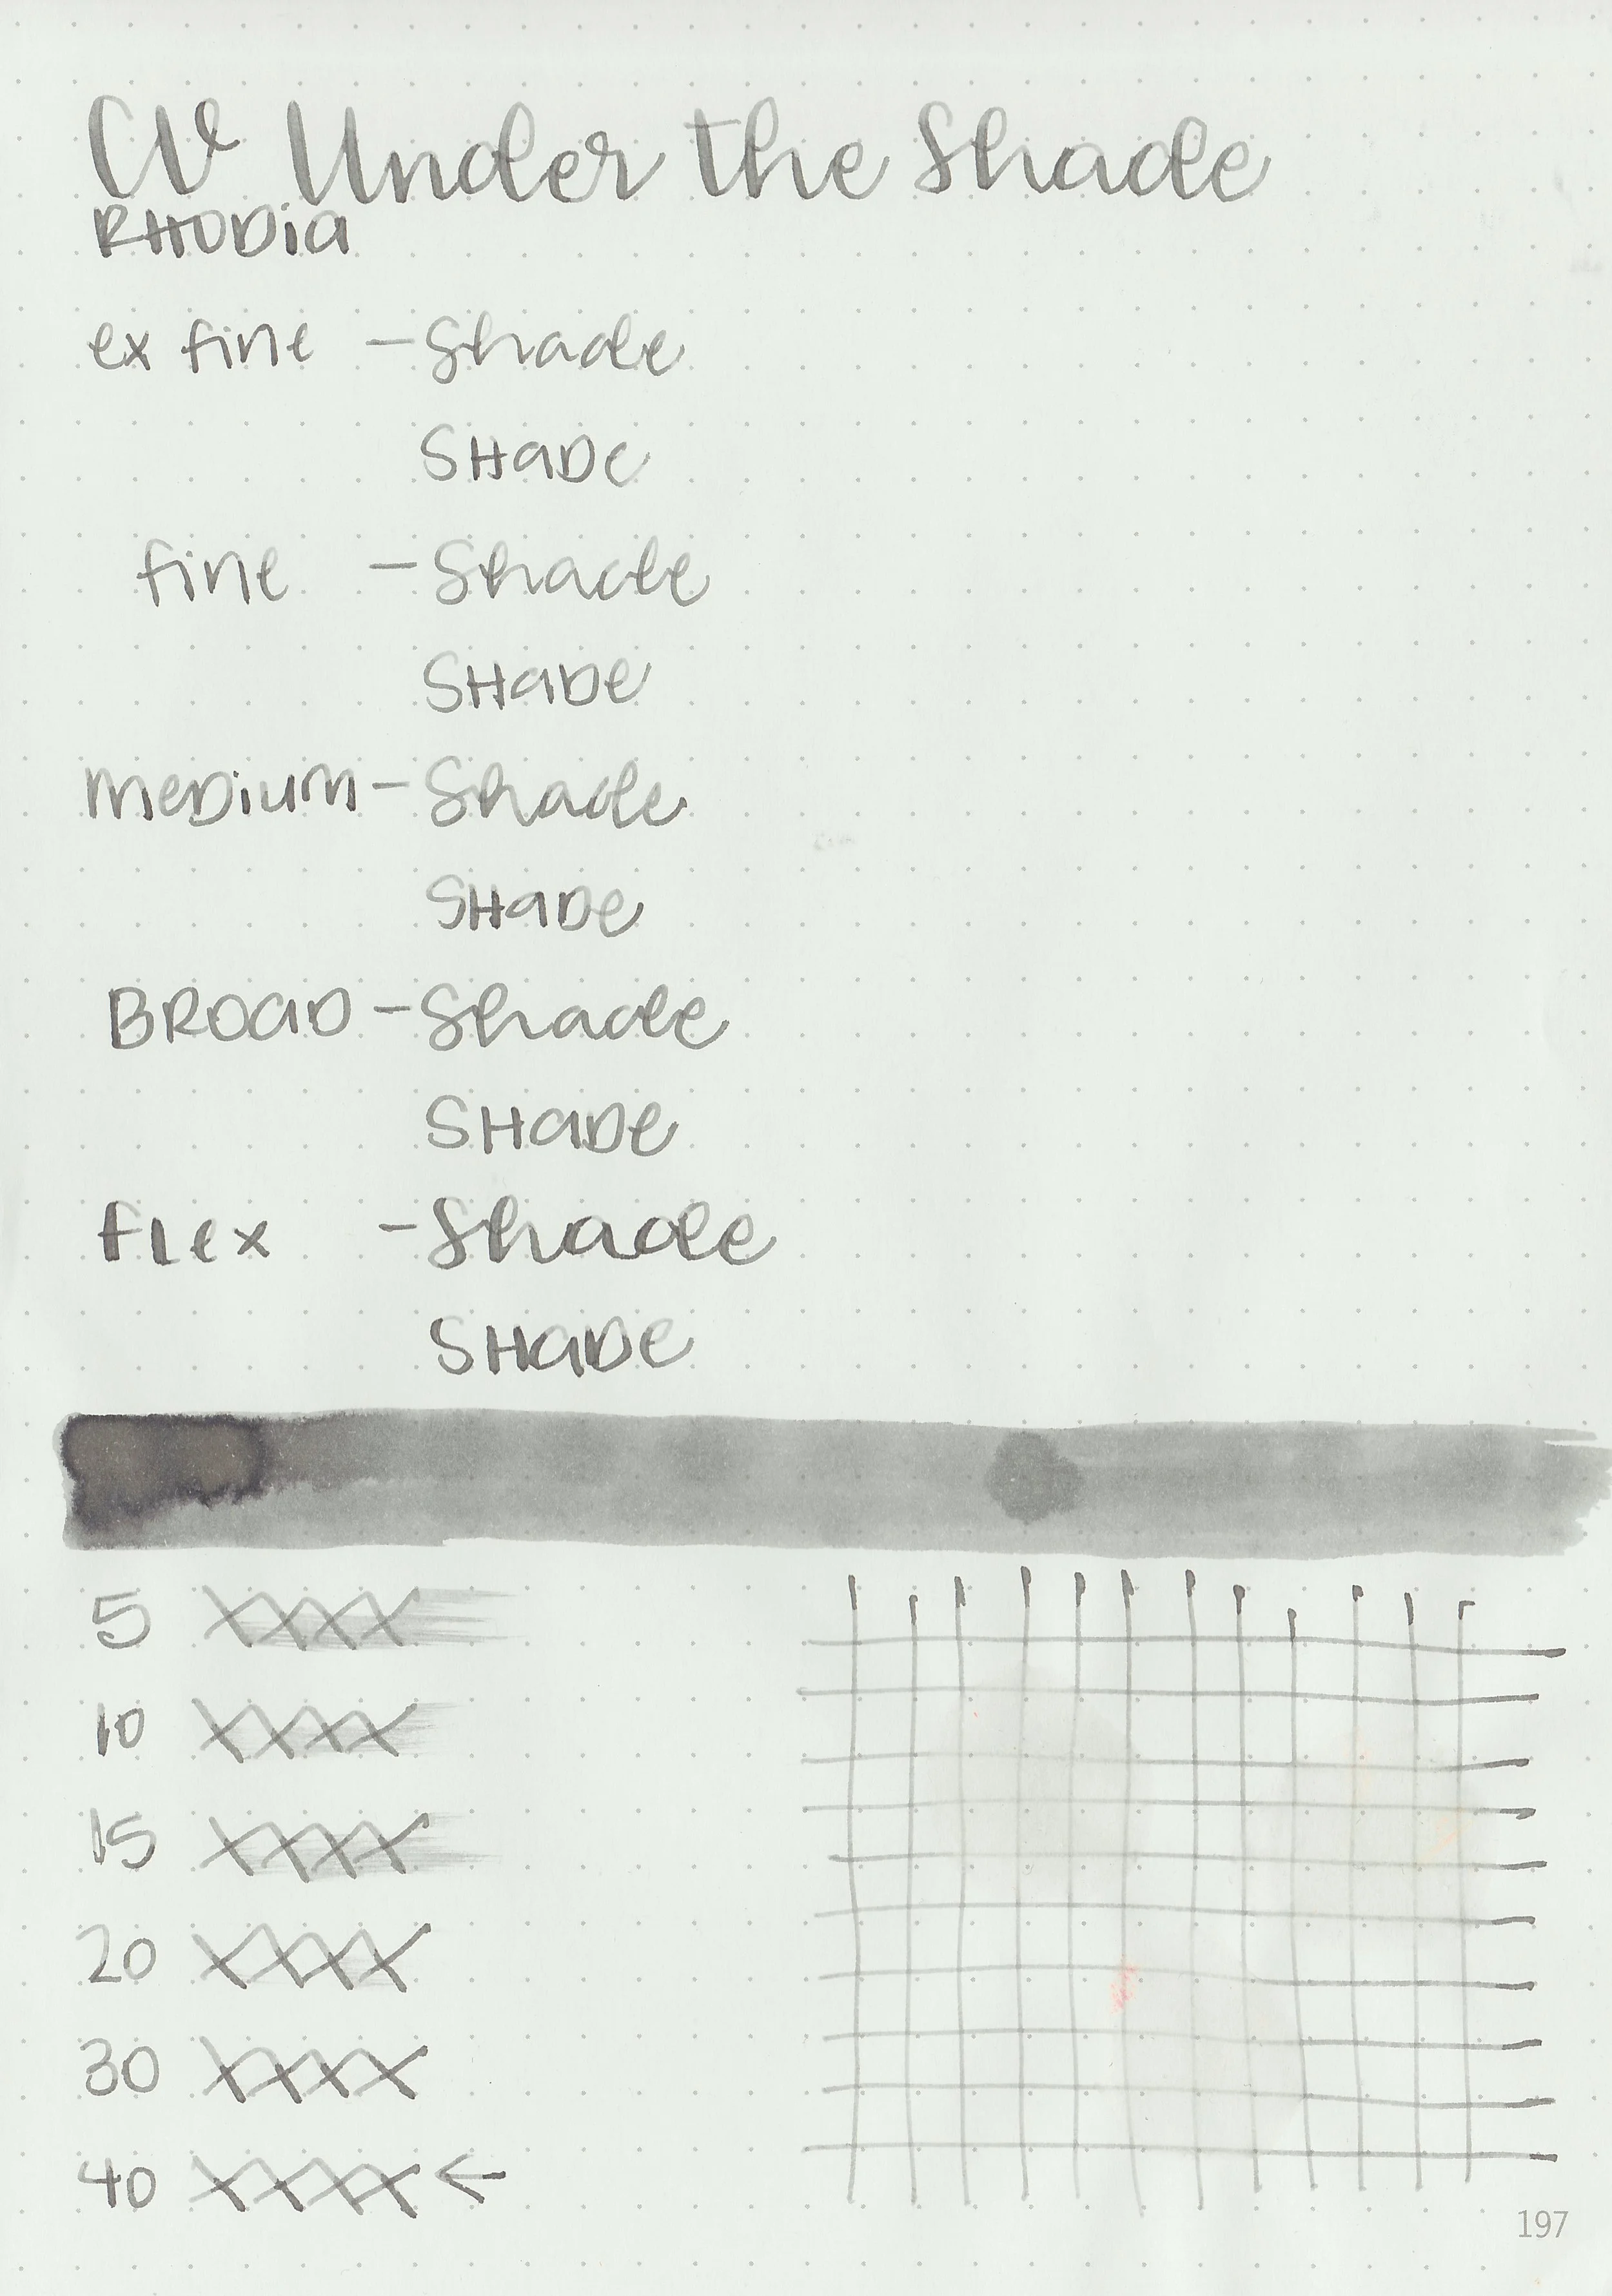 CV Under the Shade
RHODia
ex fine - Shade
SHaDe
fine - Shade
SHaDe
MeDiuM - Shade
SHaDe
BROaD - Shade
SHaDe
fLex - Shade
SHaDe
5 XXXX
10 XXXX
15 XXXX
20 XXXX
30 XXXX
40 XXXX ←
197